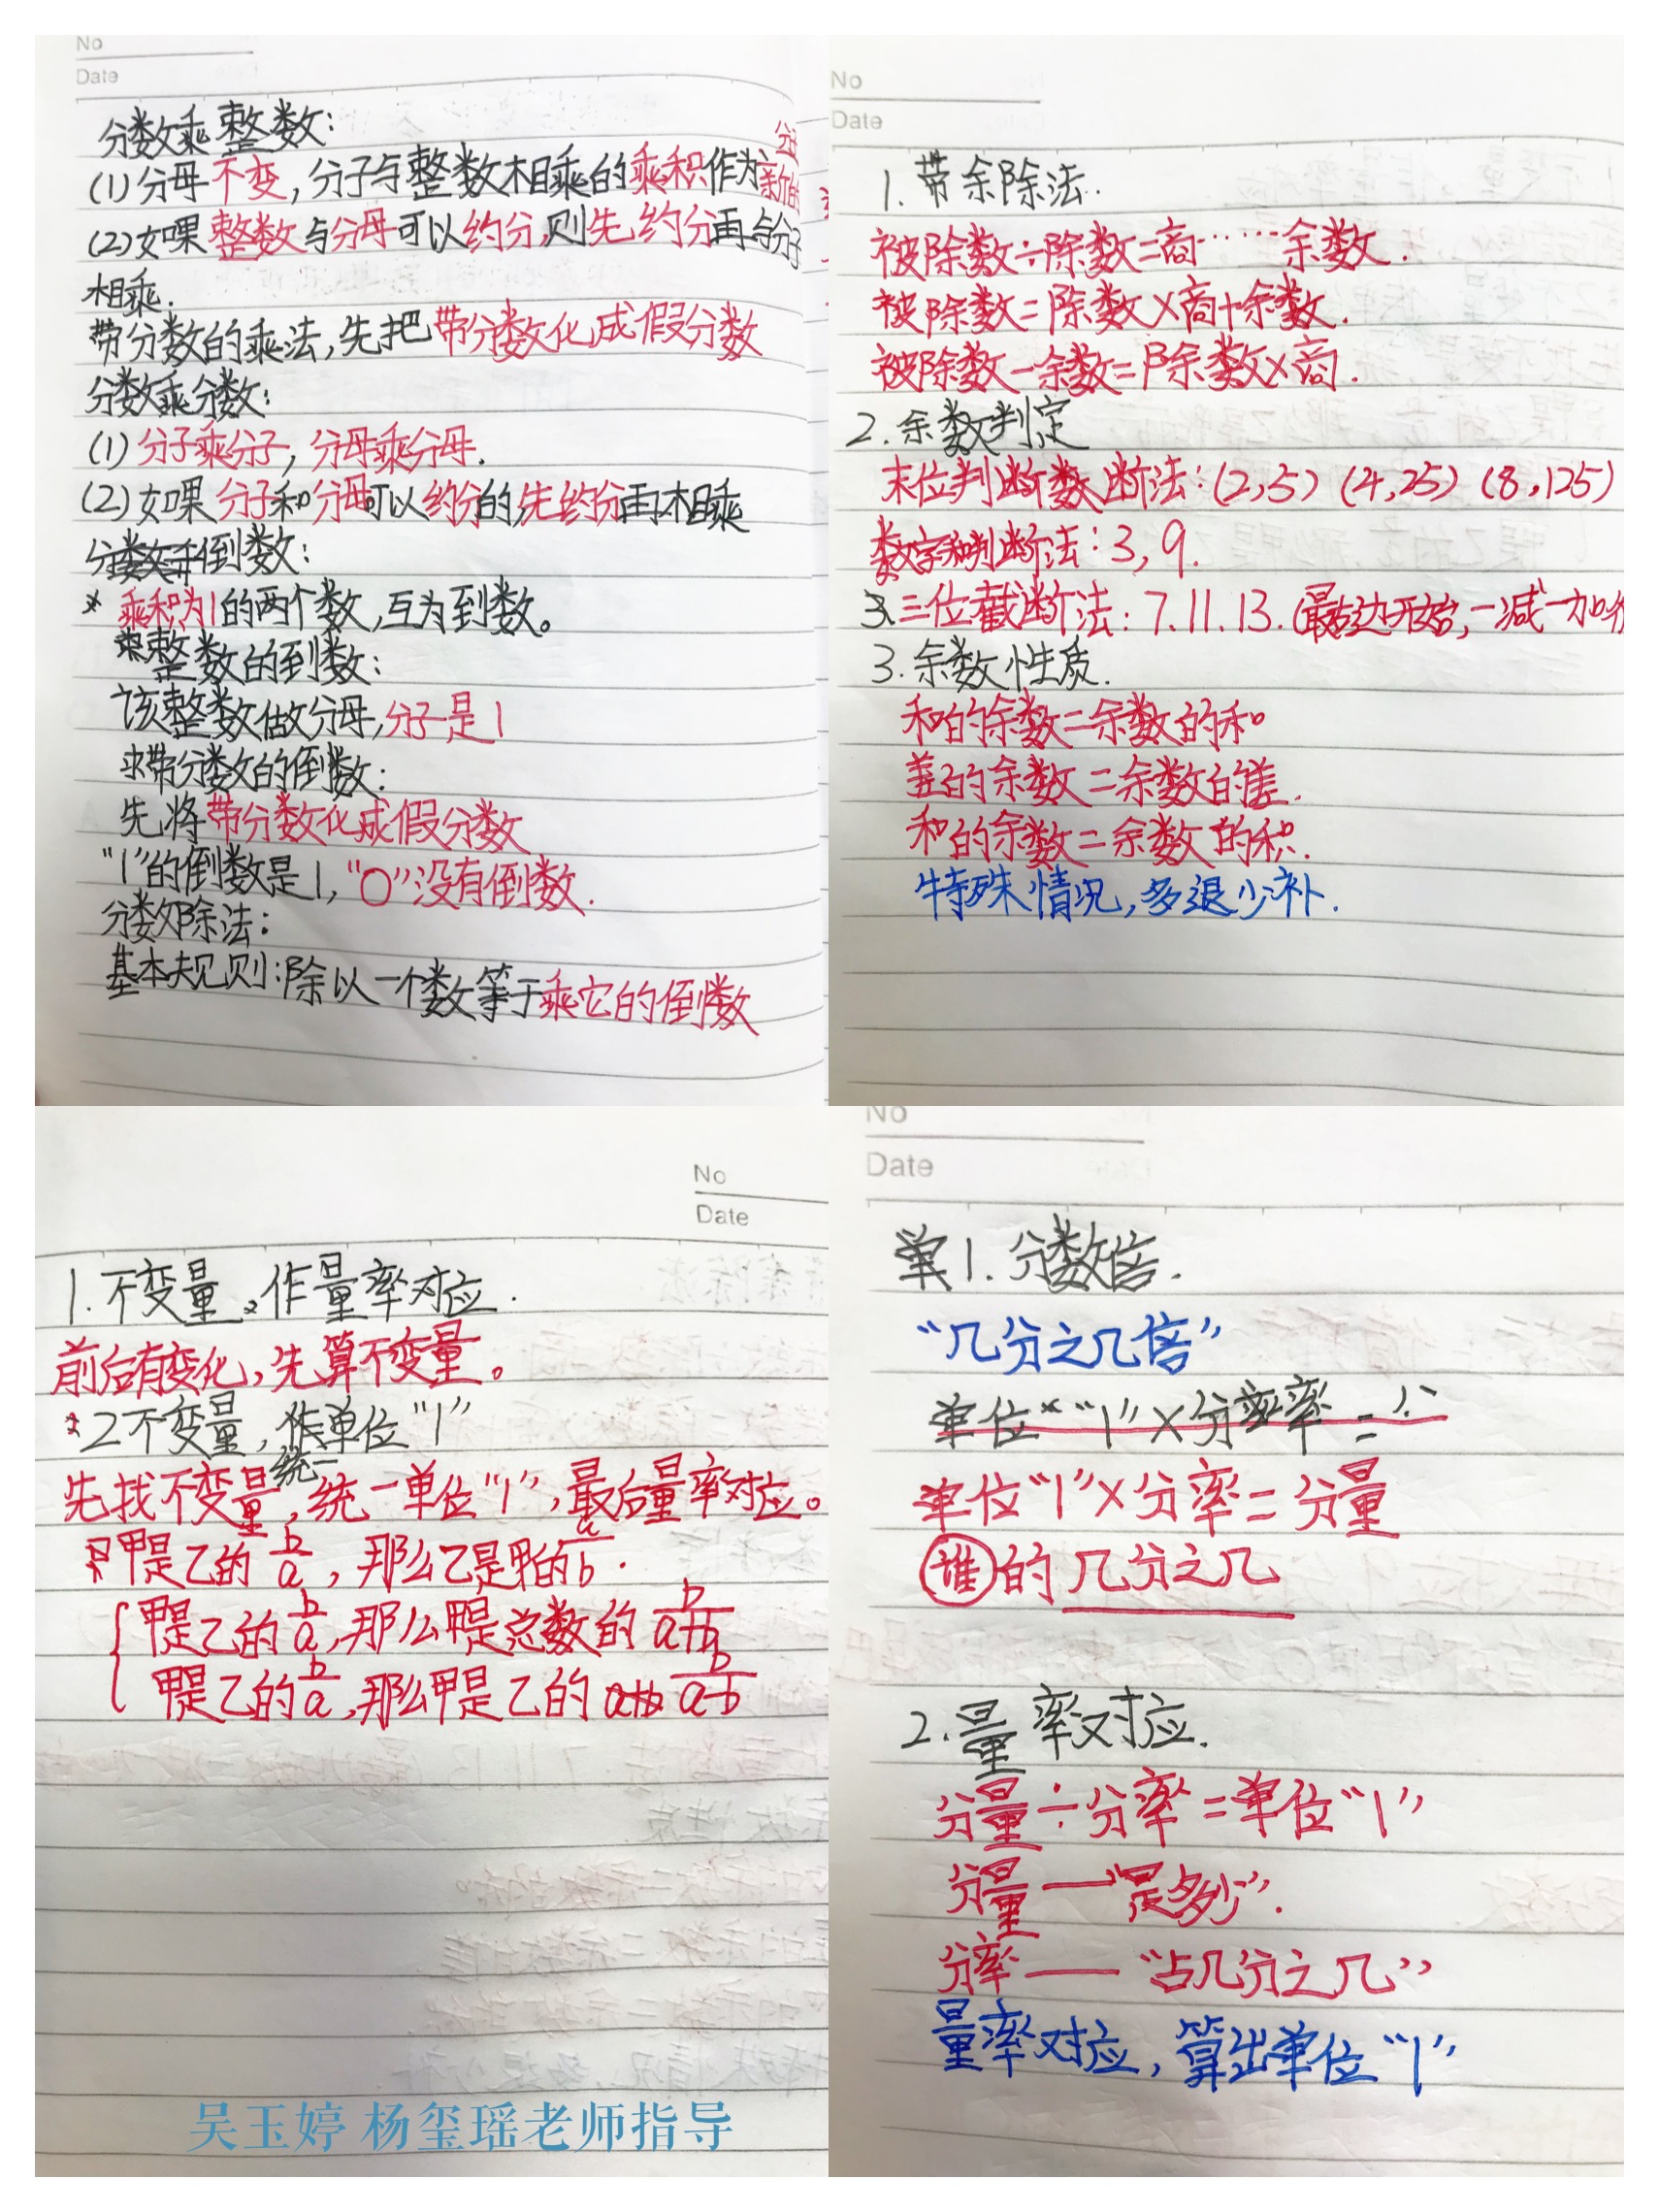 No
Date
分数乘整数:
(1)分母不变,分子与整数相乘的乘积作为新的
分
(2)如果整数与分母可以约分,则先约分再与分子
相乘.
带分数的乘法,先把带分数化成假分数
分数乘分数:
(1)分子乘分子,分母乘分母.
(2)如果分子和分母可以约分的,先约分再相乘
倒数:
* 乘积为1的两个数,互为到数。
整数的到数:
该整数做分母,分子是1
求带分数的倒数:
先将带分数化成假分数
“1”的倒数是1,“0”没有倒数.
分数除法:
基本规则:除以一个数等于乘它的倒数
No
Date
1.带余除法.
被除数÷除数=商……余数.
被除数=除数×商+余数.
被除数-余数=除数×商.
2.余数判定
末位判断断法:(2,5) (4,25) (8,125)
数字和判断法:3,9.
3.三位截断法:7.11.13.(最右边开始,一减一加
3.余数性质.
和的余数=余数的和
差的余数=余数的差.
和的余数=余数的积.
特殊情况,多退少补.
No
Date
1.不变量,作量率对应.
前后有变化,先算不变量。
2不变量,统一单位“1”
先找不变量,统一单位“1”,最后量率对应。
甲是乙的b/a,那么乙是甲的a/b.
甲是乙的b/a,那么甲是总数的b/a+b
甲是乙的b/a,那么甲是乙的b/a-b
吴玉婷 杨玺瑶老师指导
No
Date
1.分数倍.
“几分之几倍”
单位“1”×分率=
单位“1”×分率=分量
谁的几分之几
2.量率对应.
分量÷分率=单位“1”
分量—“是多少”.
分率——“占几分之几”
量率对应,算出单位“1”